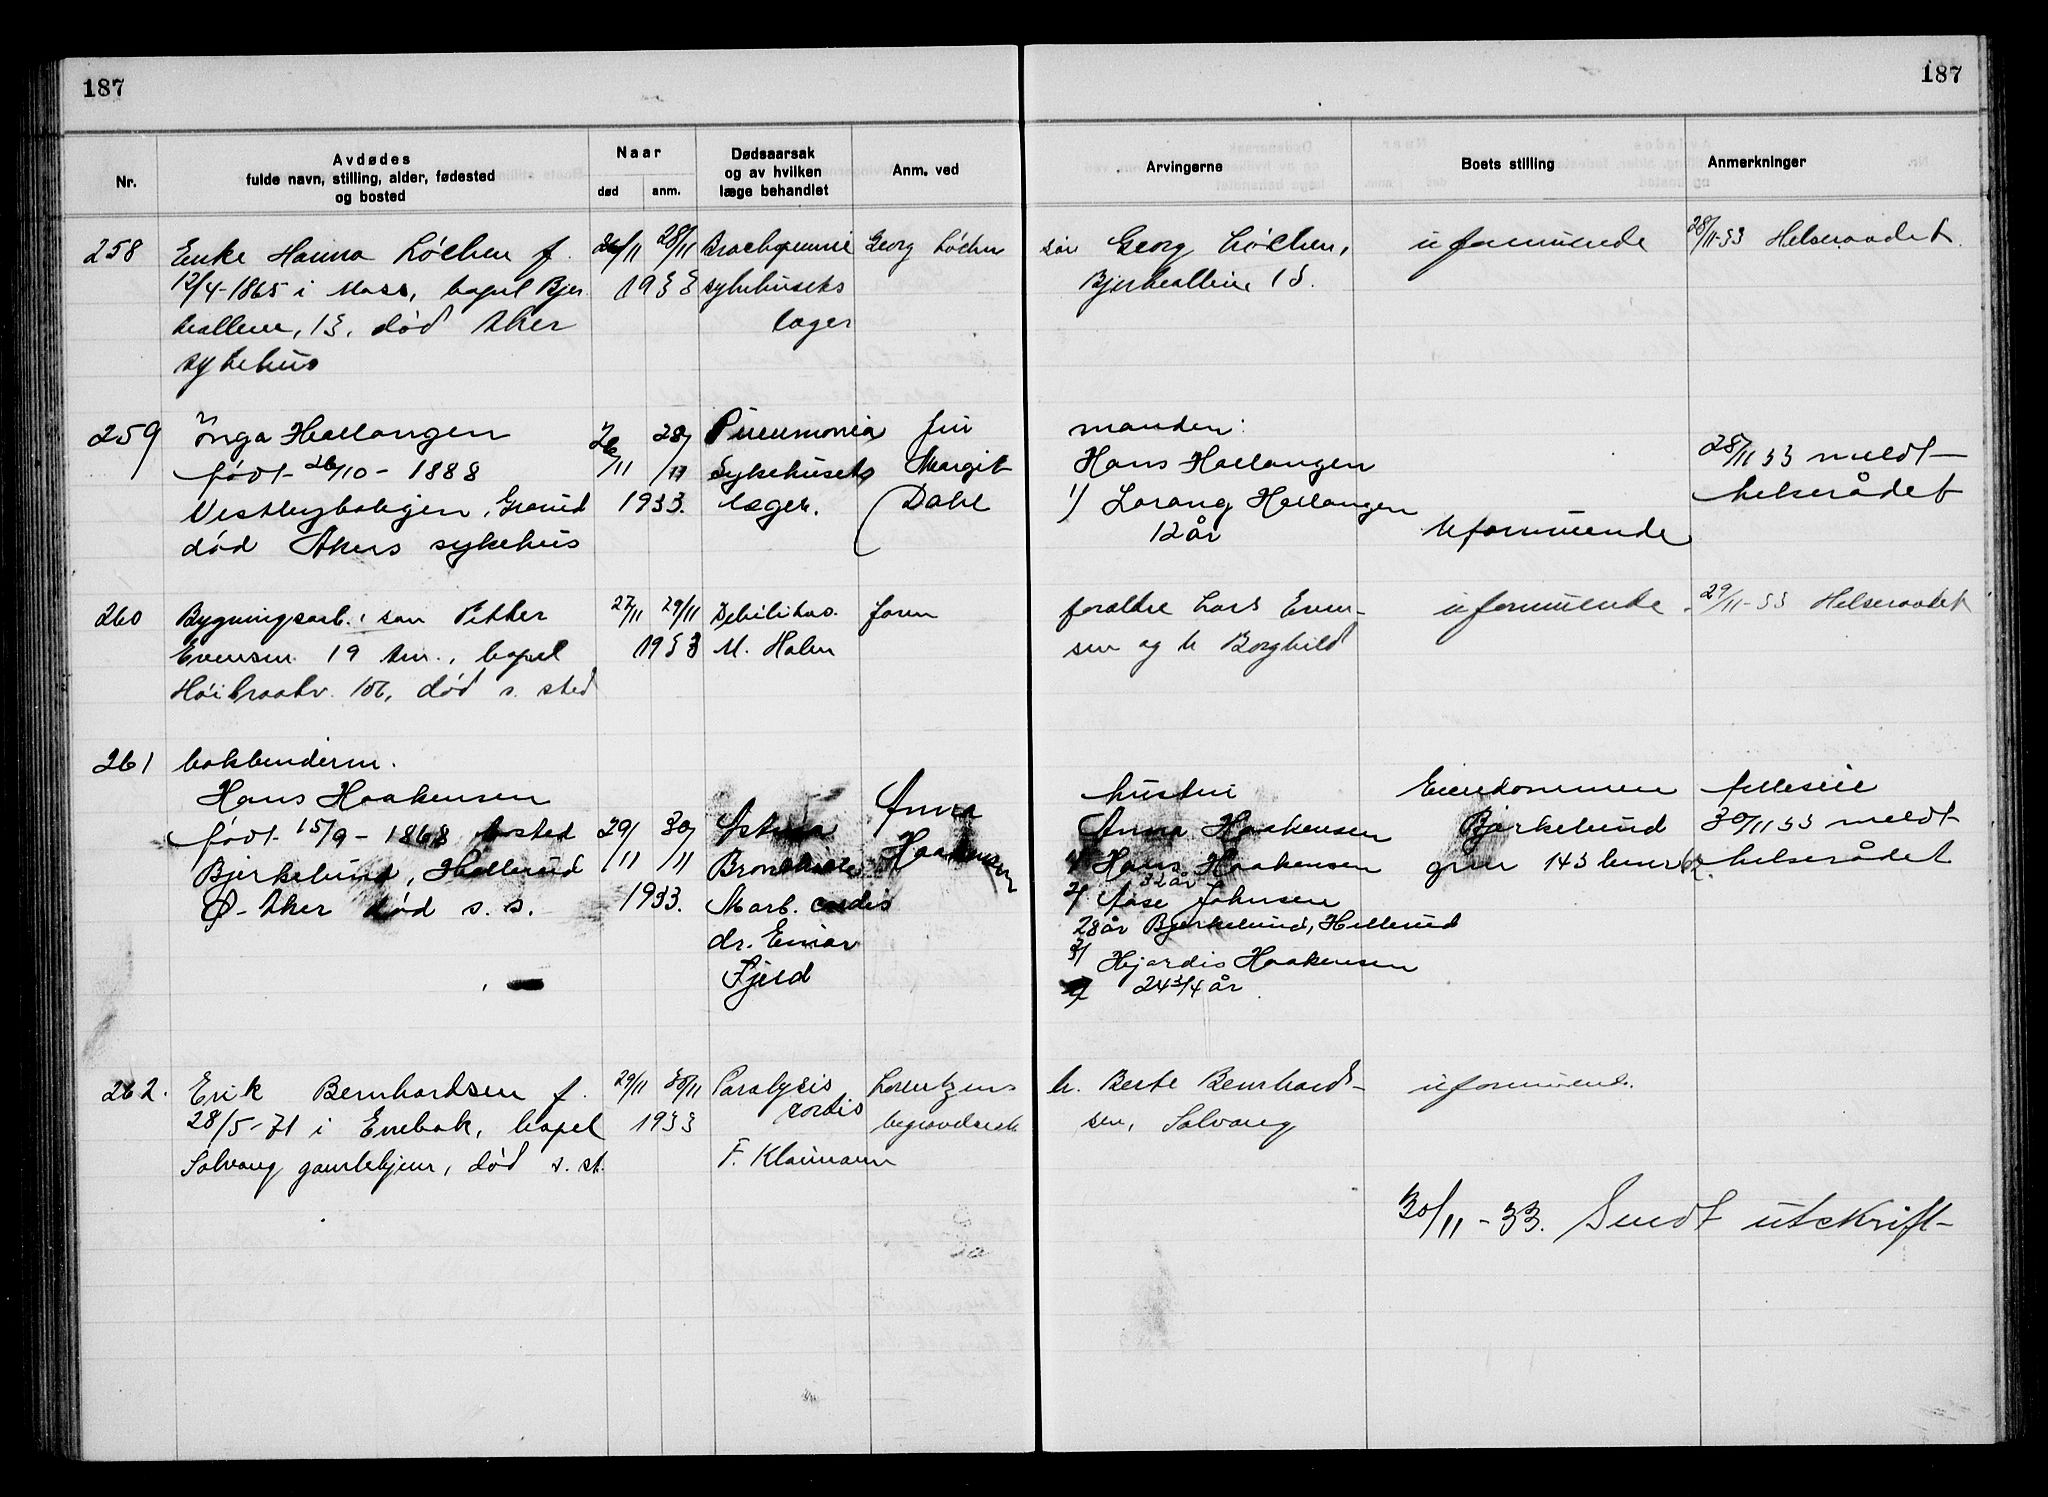 187
187
Nr.
Avdødes
fulde navn, stilling, alder, fødested
og bosted
Naar
død
anm.
Dødsaarsak
og av hvilken
læge behandlet
Anm. ved
Arvingerne
Boets stilling
Anmerkninger
258
Enke Hanna Løchen f.
12/4-1865 i Moss, bopel Bjer
kealleen, 13, død Aker
sykehus
26/11 28/11
1933
sykehusets
læger
Georg Løchen
søn Georg Løchen,
Bjerkealleen 13.
uformuende
28/11-33 Helseraadet.
259
Inga Haslangen
født 26/10 - 1888
Vestbyboligen, Grorud
død Akers sykehus
26/11 28/11
1933.
Pneumonia
Sykehusets
læger.
fru
Margit
Dahl
manden:
Hans Haslangen
1/ Lorang Haslangen
12 år
Uformuende
28/11 33 meldt
helserådet
260
Bygningsarb. søn Petter
Evensen 19 dm., bopel
Høibraatv. 106, død s. sted
27/11 29/11
1933
Debilitas.
M. Holm
faren
foreldre Lars Even-
sen og h Borghild
uformuende
29/11-33 Helseraadet
261
bokbinderm.
Hans Haakensen
født 15/9 - 1868 bosted
Bjerkelund, Hellerud
Ø. Aker død s. s.
29/11 30/11
1933.
Astma
Bronchiale
Morb. cordis
dr. Einar
Fjeld
Anna
Haakensen
hustru
Anna Haakensen
1/ Hans Haakensen
32 år
2/ Aase Johnsen
28 år Bjerkelund, Hellerud
3/ Hjørdis Haakensen
24 3/4 år
Eiendommen
Bjerkelund
gnr 143 bnr 62.
felleseie
30/11 33 meldt
helserådet
262.
Erik Bernhardsen f.
28/5-71 i Enebak, bopel
Solvang gamlehjem, død s. st.
29/11 30/11
1933
Paralysis
cordis
F. Klaumann
Lorentzens
begravelsesb.
h. Berte Bernhard-
sen, Solvang
uformuende.
30/11 - 33. Sendt utskrift